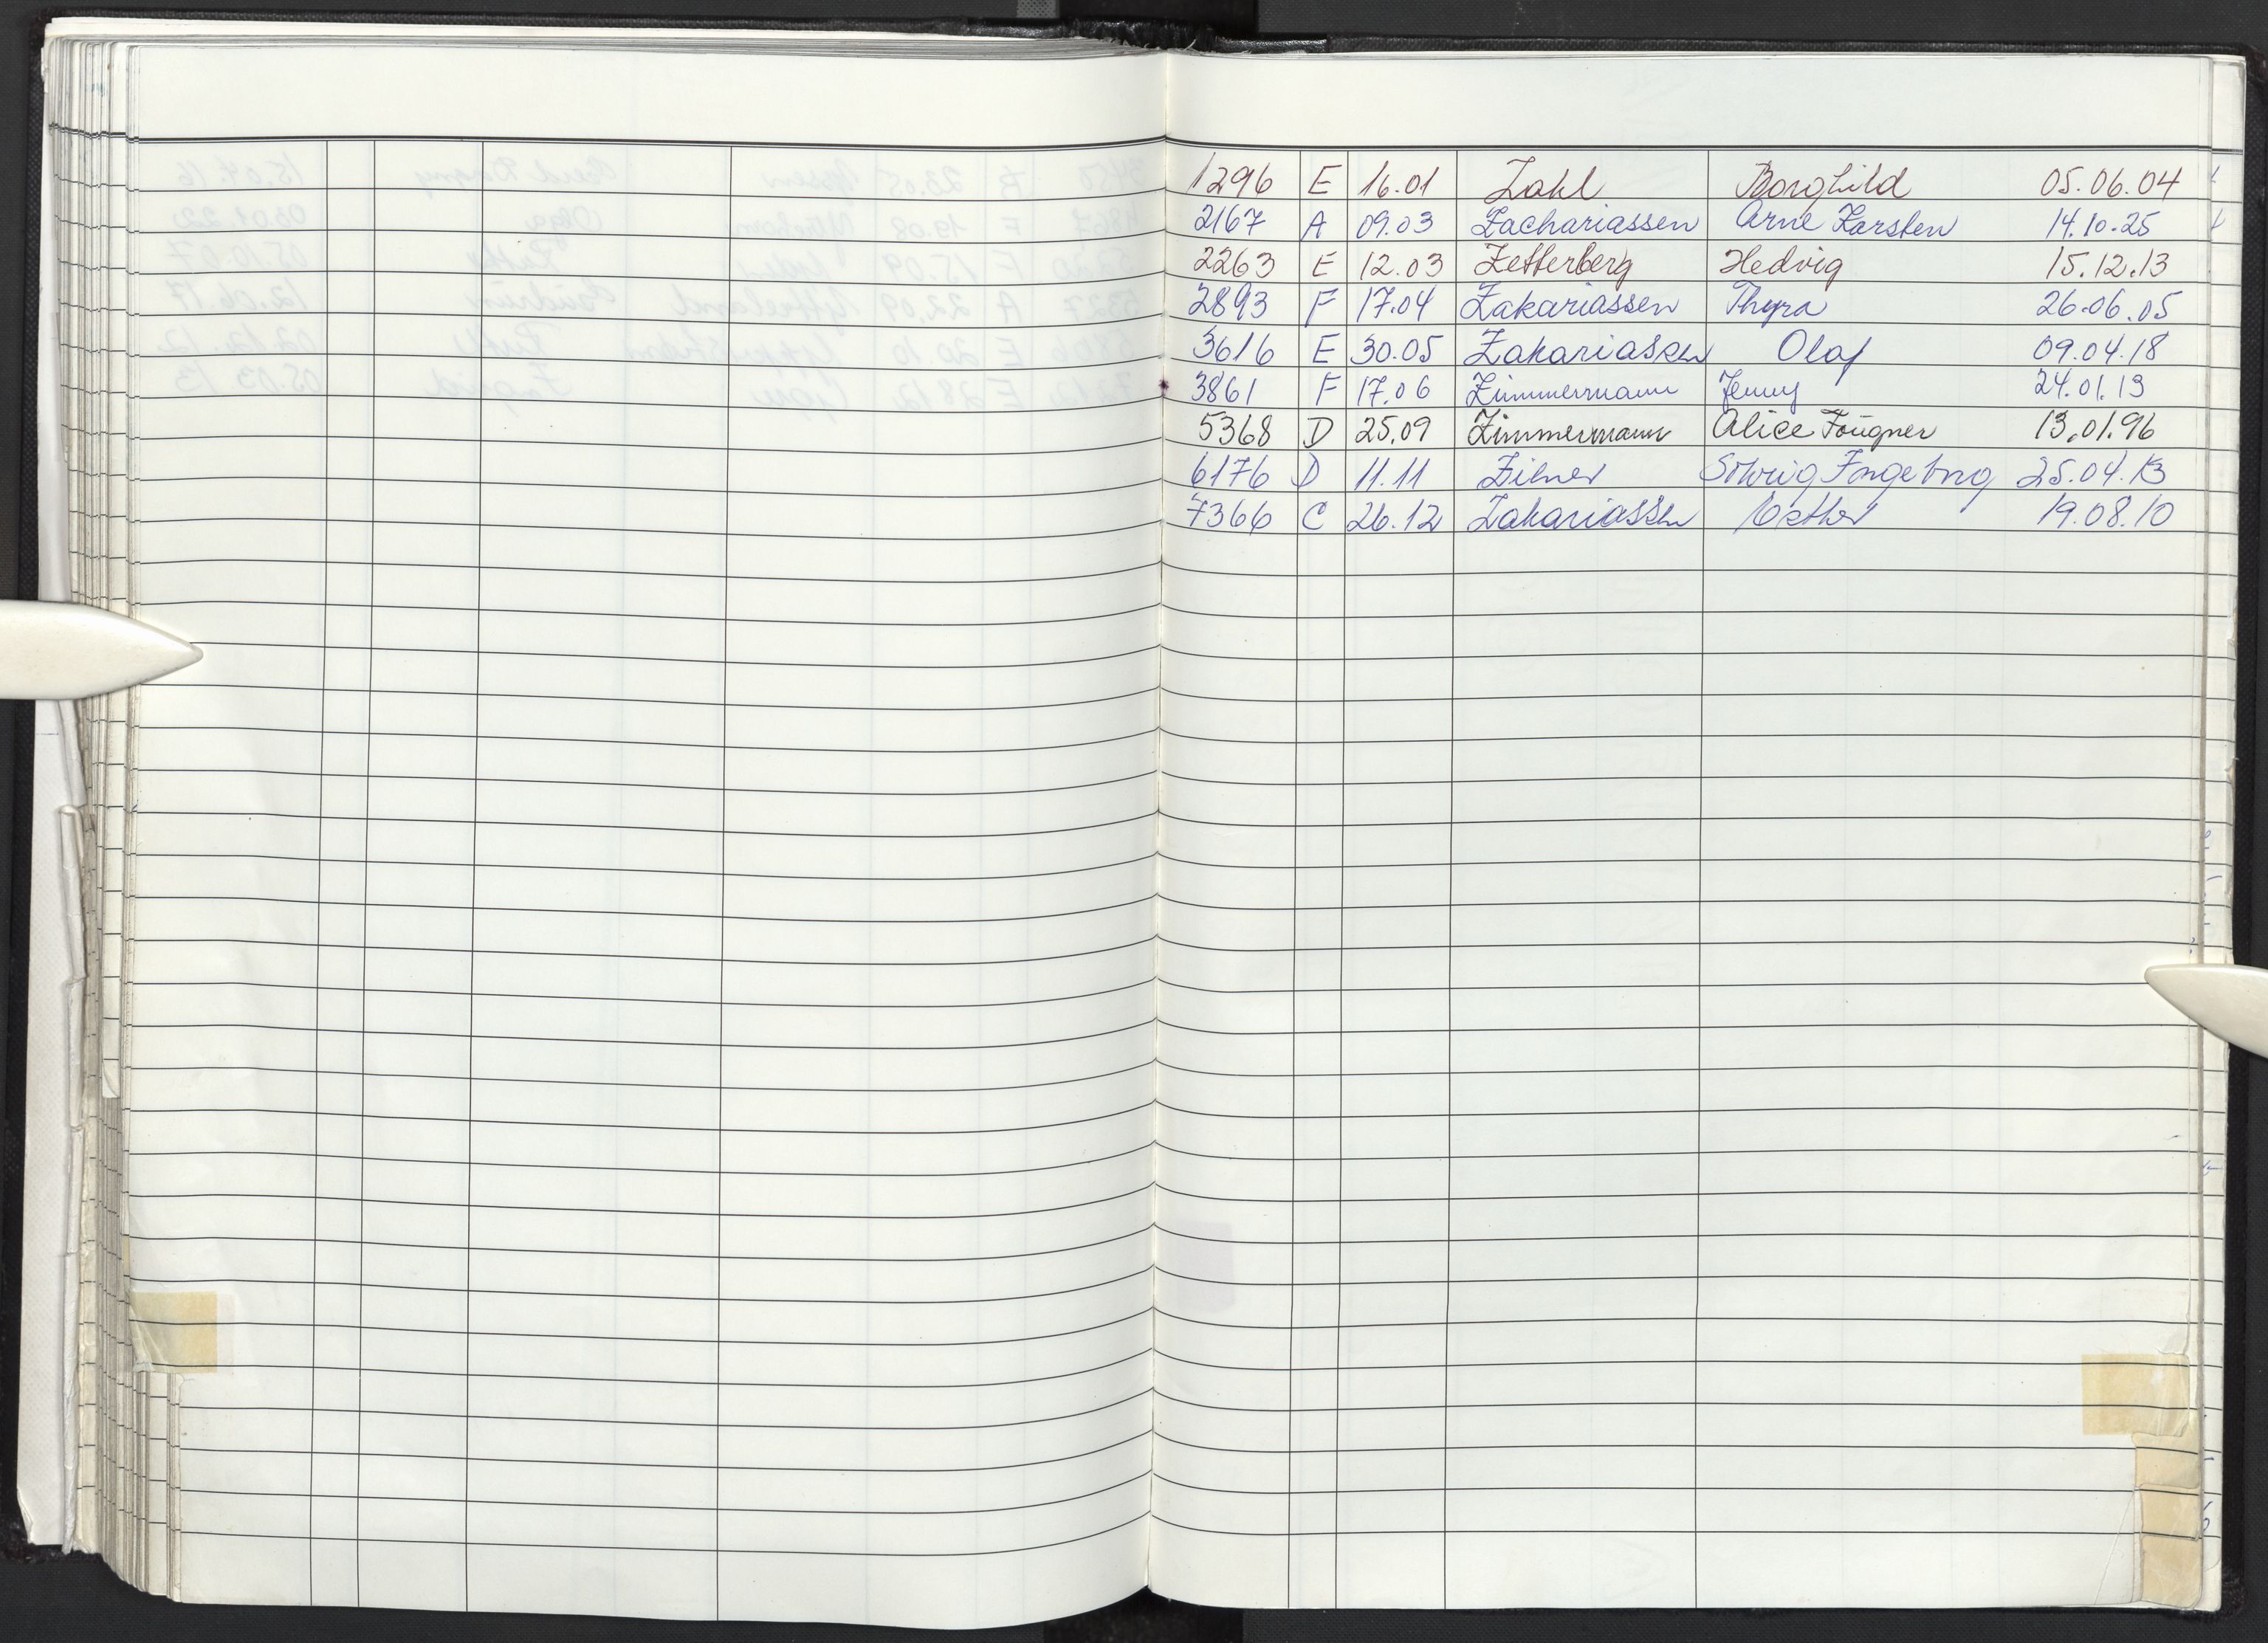 1296 E 16.01 Zahl Borghild 05.06.04
2167 A 09.03 Zachariassen Arne Karsten 14.10.25
2263 E 12.03 Zetterberg Hedvig 15.12.13
2893 F 17.04 Zakariassen Thyra 26.06.05
3616 E 30.05 Zakariassen Olaf 09.04.18
3861 F 17.06 Zimmermann Jenny 24.01.13
5368 D 25.09 Zimmermann Alice Fougner 13.01.96
6176 D 11.11 Zilner Solveig Ingeborg 25.04.13
7366 C 26.12 Zakariassen 19.08.10